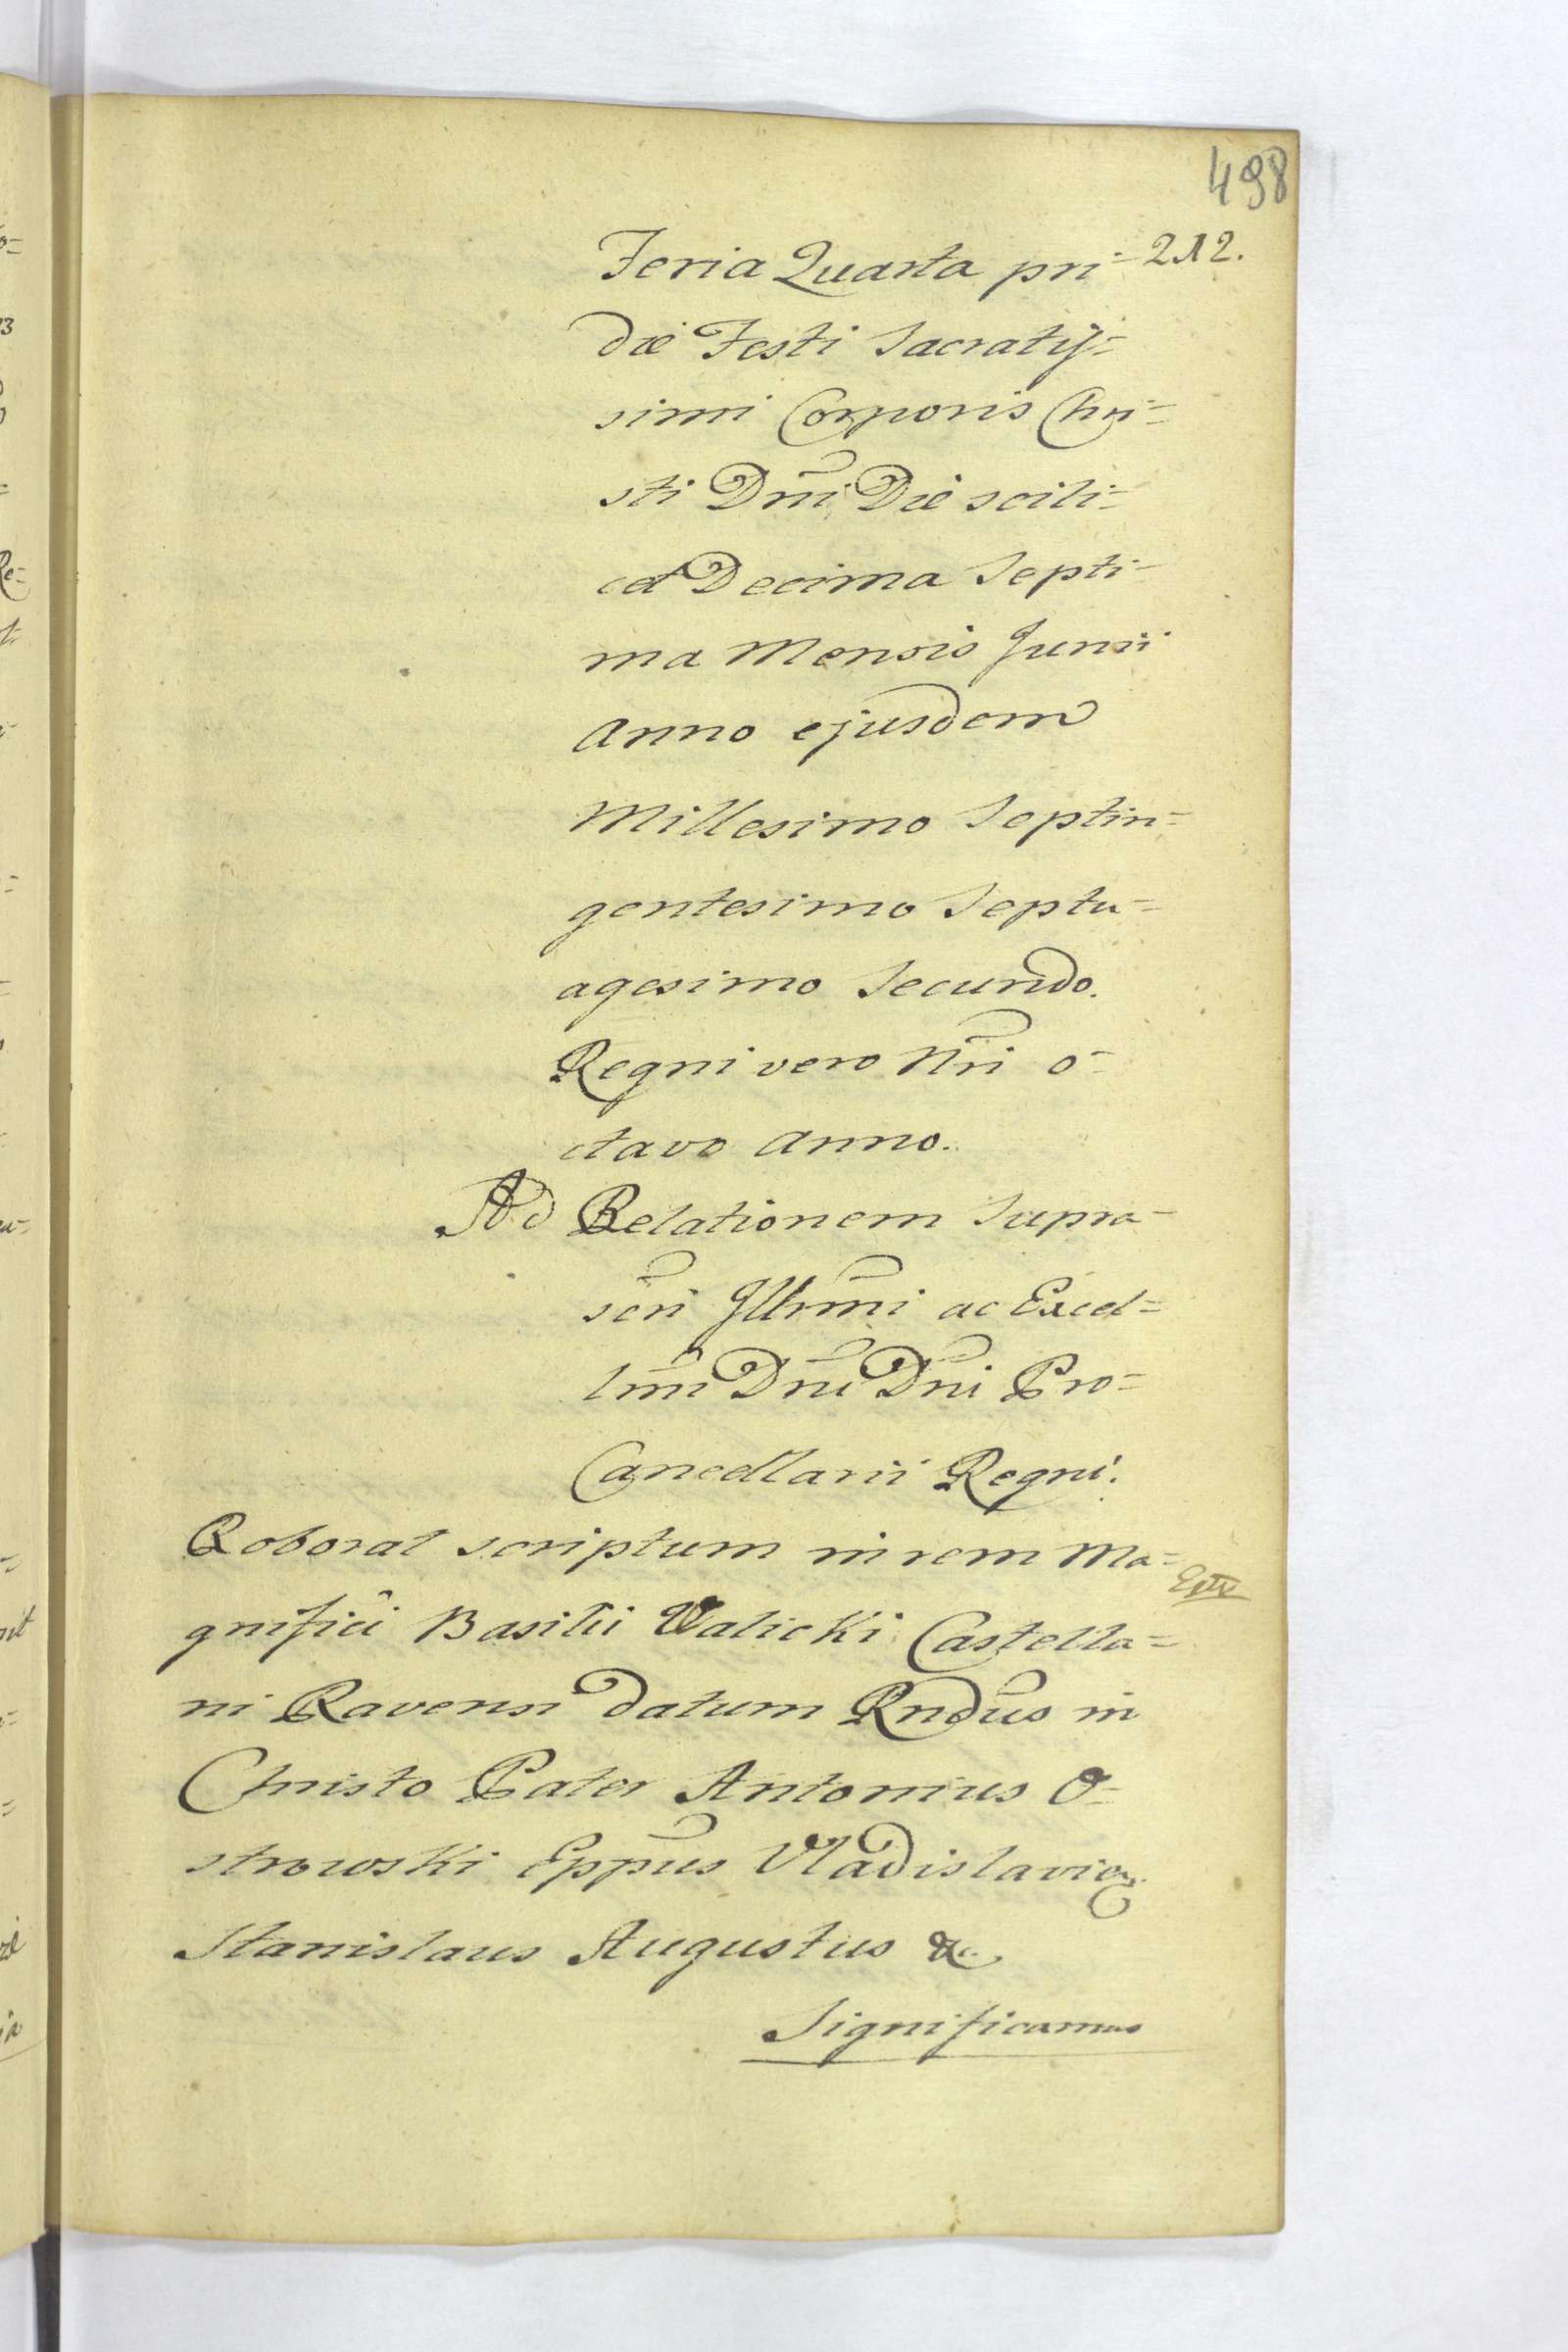 498
212.
Feria Quarta pri=
die Festi Sacratis=
simi Corporis Chri=
sti Dni Die scili=
cet Decima Septi=
ma Mensis Junii
Anno ejusdem
Millesimo Septin=
gentesimo Septu=
agesimo Secundo.
Regni vero Nri o=
ctavo Anno.
Ad Relationem Supra=
scri Illrmi ac Excel=
lmi Dni Dni Pro=
Cancellarii Regni.
Roborat scriptum in rem Ma=
gnifici Basilii Valicki Castella=
ni Ravensi datum Rndus in
Christo Pater Antonius O=
strowski Eppus Vladislavien
Stanislaus Augustus &c
Significamus